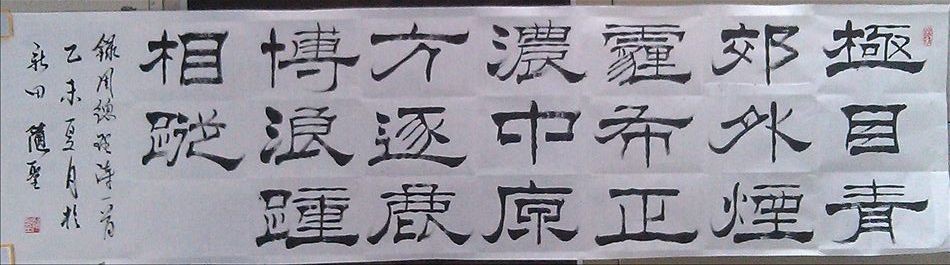 極目青
郊外煙
霾布正
濃中原
方逐鹿
博浪踵
相蹤
錄周總理詩一首
乙未夏月於